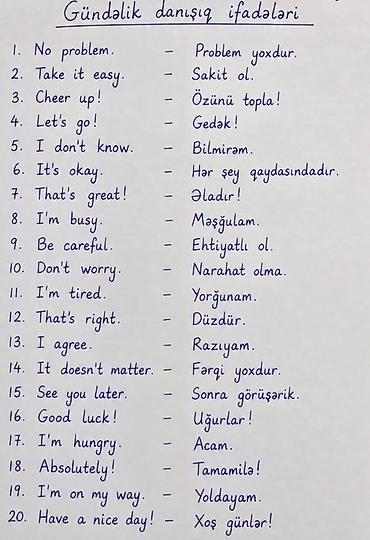 Gündəlik danışıq ifadələri
1. No problem. – Problem yoxdur.
2. Take it easy. – Sakit ol.
3. Cheer up! – Özünü topla!
4. Let's go! – Gedək!
5. I don't know. – Bilmirəm.
6. It's okay. – Hər şey qaydasındadır.
7. That's great! – Əladır!
8. I'm busy. – Məşğulam.
9. Be careful. – Ehtiyatlı ol.
10. Don't worry. – Narahat olma.
11. I'm tired. – Yorğunam.
12. That's right. – Düzdür.
13. I agree. – Razıyam.
14. It doesn't matter. – Fərqi yoxdur.
15. See you later. – Sonra görüşərik.
16. Good luck! – Uğurlar!
17. I'm hungry. – Acam.
18. Absolutely! – Tamamilə!
19. I'm on my way. – Yoldayam.
20. Have a nice day! – Xoş günlər!